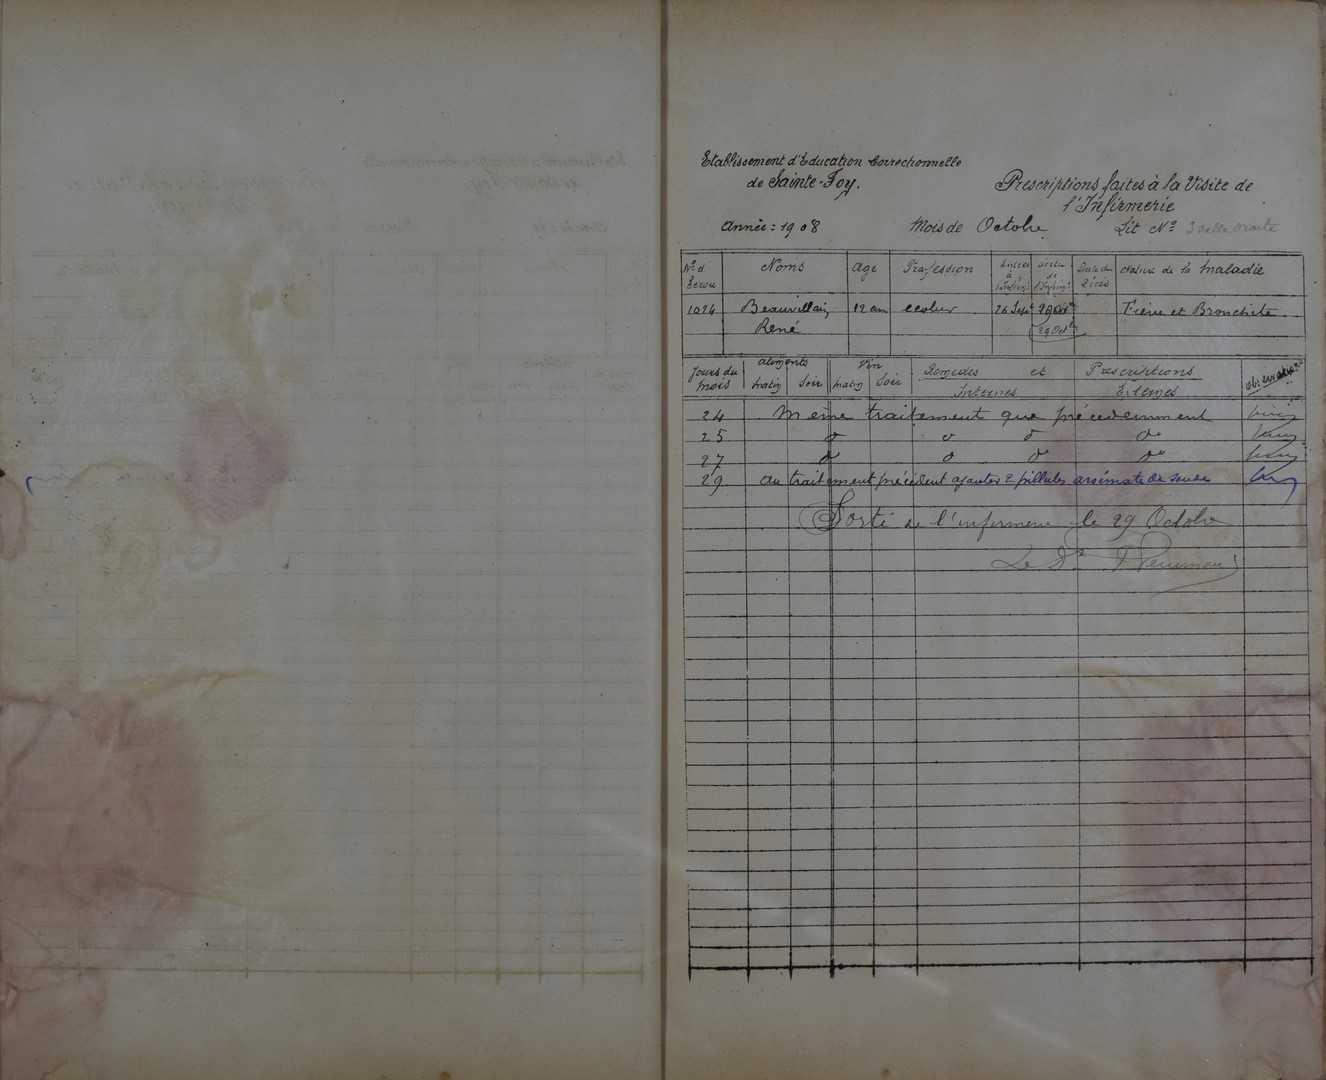 Etablissement d'Education Correctionnelle
de Sainte-Foy.
Prescriptions faites à la Visite de
l'Infirmerie
Année : 1908 Mois de Octobre Lit Nº 3 salle droite
Nº d'Ecrou Noms Age Profession Entrée à l'Infirmie Sortie de l'Infirmie Date du Décés Nature de la Maladie
1024 Beauvillain 12 ans ecolier 26 Sept 29 Oct Fièvre et Bronchite
René 29 Octbre
Jours du Mois Aliments Matin Soir Vin Matin Soir Remèdes et Prescriptions Internes Externes Observations
24 Meme traitement que précedemment
25 dº dº dº dº
27 dº dº dº dº
29 au traitement précédent ajouter 2 pillules arséniate de soude
Sorti de l'infirmerie le 29 Octobre
Le Dr